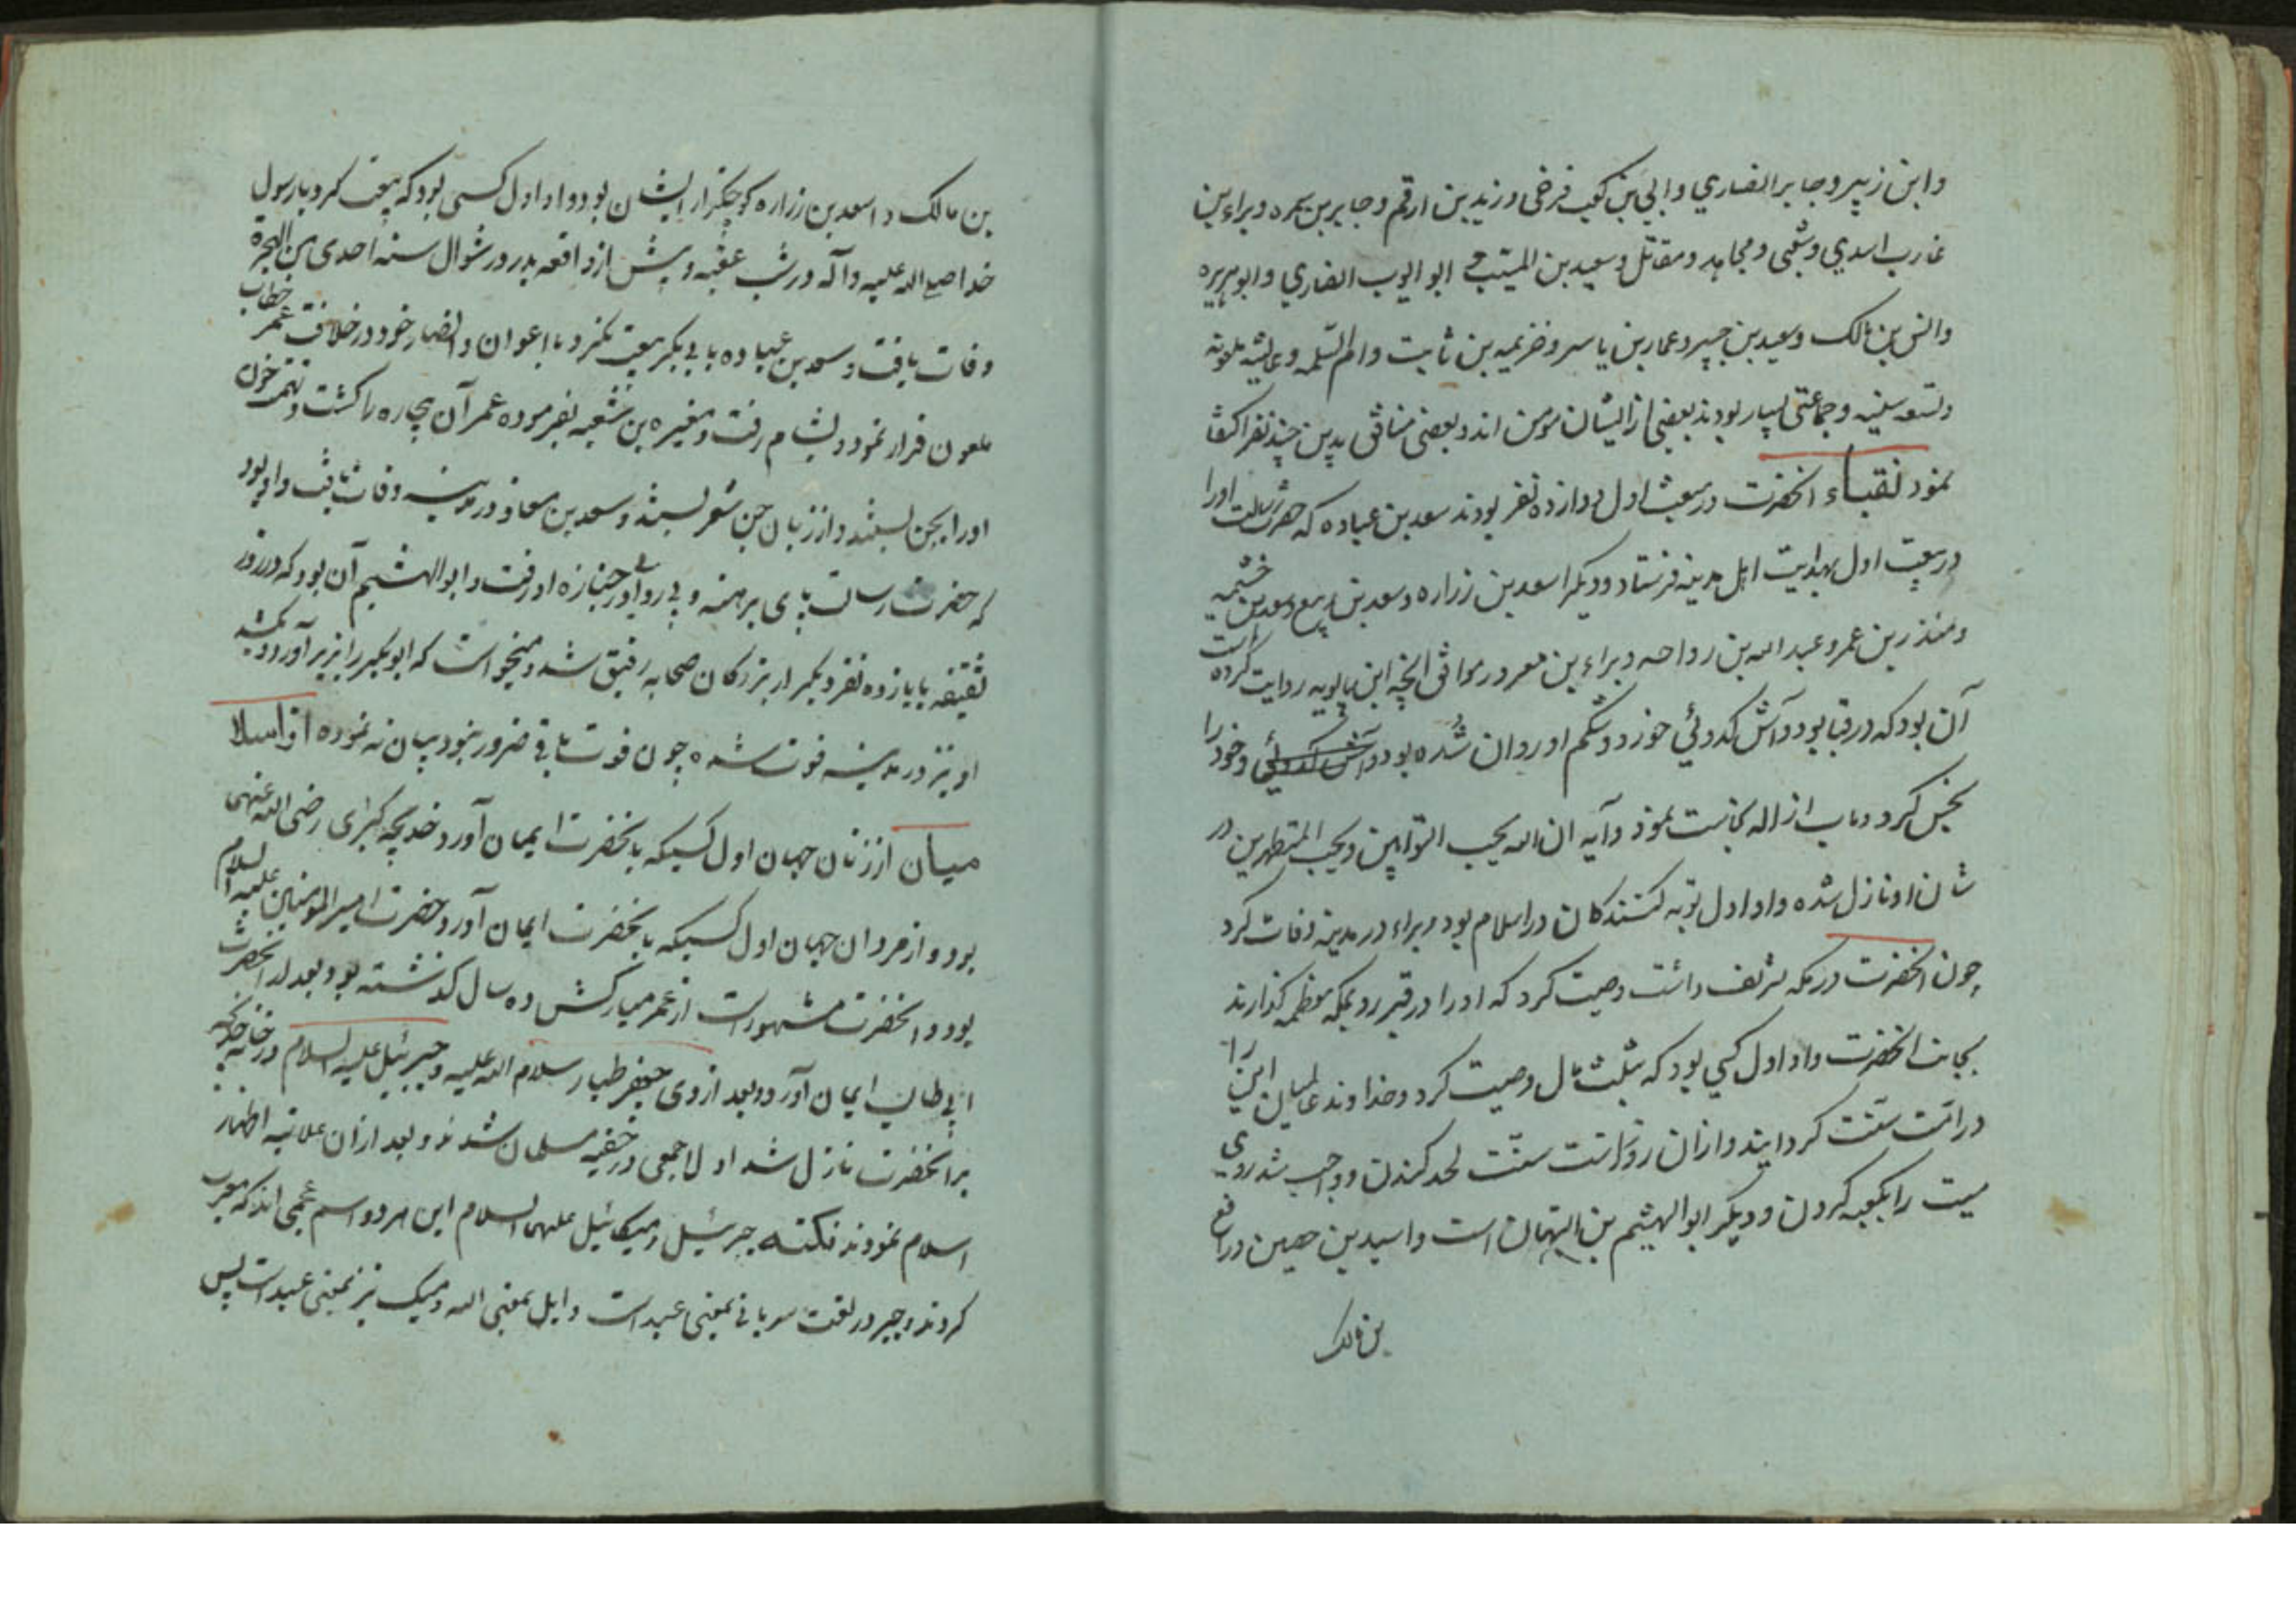 وابن زبیر و جابر انصاري و ابي بن کعب فرضی و زید بن ارقم و جابر بن سمره و براء بن
عازب اسدي و شعبی و مجاهد و مقاتل و سعید بن المسیب ابو ایوب انصاري و ابو هریره
و انس بن مالک و سعید بن جبیر و عمار بن یاسر و خزیمه بن ثابت و ام السلمه و عایشه ملعونه
و جماعتی بسیار بودند بعضی از ایشان مؤمن اند و بعضی منافق بدین چند نفر اکتفا
نمود نقباء انحضرت در بیعت اول دوازده نفر بودند سعد بن عباده که حضرت رسالت اورا
در بیعت اول بهدایت اهل مدینه فرستاد و دیگر اسعد بن زراره و سعد بن ربیع و سعد بن خثیمه
و منذر بن عمرو عبد الله بن رواحه و براء بن معرور موافق انچه ابن بابویه روایت کرده است
آن بود که در قبا بود و آش کدوئي خورد و شکم او روان شده بود و آش کدوئي و خود را
نجس کرد و باب ازاله نجاست نمود و آیه ان الله یحب التوابین و یحب المتطهرین در
شان او نازل شده و او اول توبه کنندکان در اسلام بود و براء در مدینه وفات کرد
چون انحضرت در مکه تشریف داشت وصیت کرد که اورا در قبر رو بمکه معظمه کذارند
بجانب انحضرت و او اول کسي بود که بثلث مال وصیت کرد و خداوند عالمیان این را
در امت سنت کردانید و ازان روز است سنت لحد کندن و واجب شد روی
میت را بکعبه کردن و دیگر ابو الهیثم بن التیهان است و اسید بن حصین و رافع
بن مالک
بن مالک و اسعد بن زراره کوچکتر از ایشان بود و او اول کسی بود که بیعت کرد با رسول
خدا صلی الله علیه و آله در شب عقبه و پیش از واقعه بدر در شوال سنه احدی من الهجرة
وفات یافت و سعد بن عباده با ابی بکر بیعت نکرد و با اعوان و انصار خود در خلافت عمر خطاب
ملعون فرار نمود و بشام رفت و مغیره بن شعبه بفرموده عمر آن بیچاره را کشت و تهمت خون
اورا بجن بستند و از زبان جن شعر بستند و سعد بن معاذ در مدینه وفات یافت و او بود
که حضرت رسالت پای برهنه و بی ردا در جنازه او رفت و ابو الهشیم آن بود که در روز
ثقیفه با یازده نفر دیگر از بزرکان صحابه رفیق شد و میخواست که ابو بکر را بزیر آورد و بکشد
او نیز در مدینه فوت شده چون فوت باقی ضرور نبود بیان نه نموده اوّ اسلا
میان از زنان جهان اول کسیکه بانحضرت ایمان آورد خدیجه کبری رضی الله عنهی
بود و از مردان جهان اول کسیکه بانحضرت ایمان آورد حضرت امیر المؤمنین علیه السلام
بود و انحضرت مشهور است از عمر مبارکش ده سال کذشته بود و بعد از انحضرت
ابی طالب ایمان آورد و بعد از وی جعفر طیار سلام الله علیه و جبرئیل علیه السلام در خانه خدیجه
بر انحضرت نازل شد اولا جمعی در خفیه مسلمان شدند و بعد ازان علانیه اظهار
اسلام نمودند نکته جبرئیل و میکائیل علیهما السلام این هر دو اسم عجمی اند که معرب
کردند و جبر در لغت سریانی بمعنی عبد است و ایل بمعنی الله و میک نیز بمعنی عبد است پس